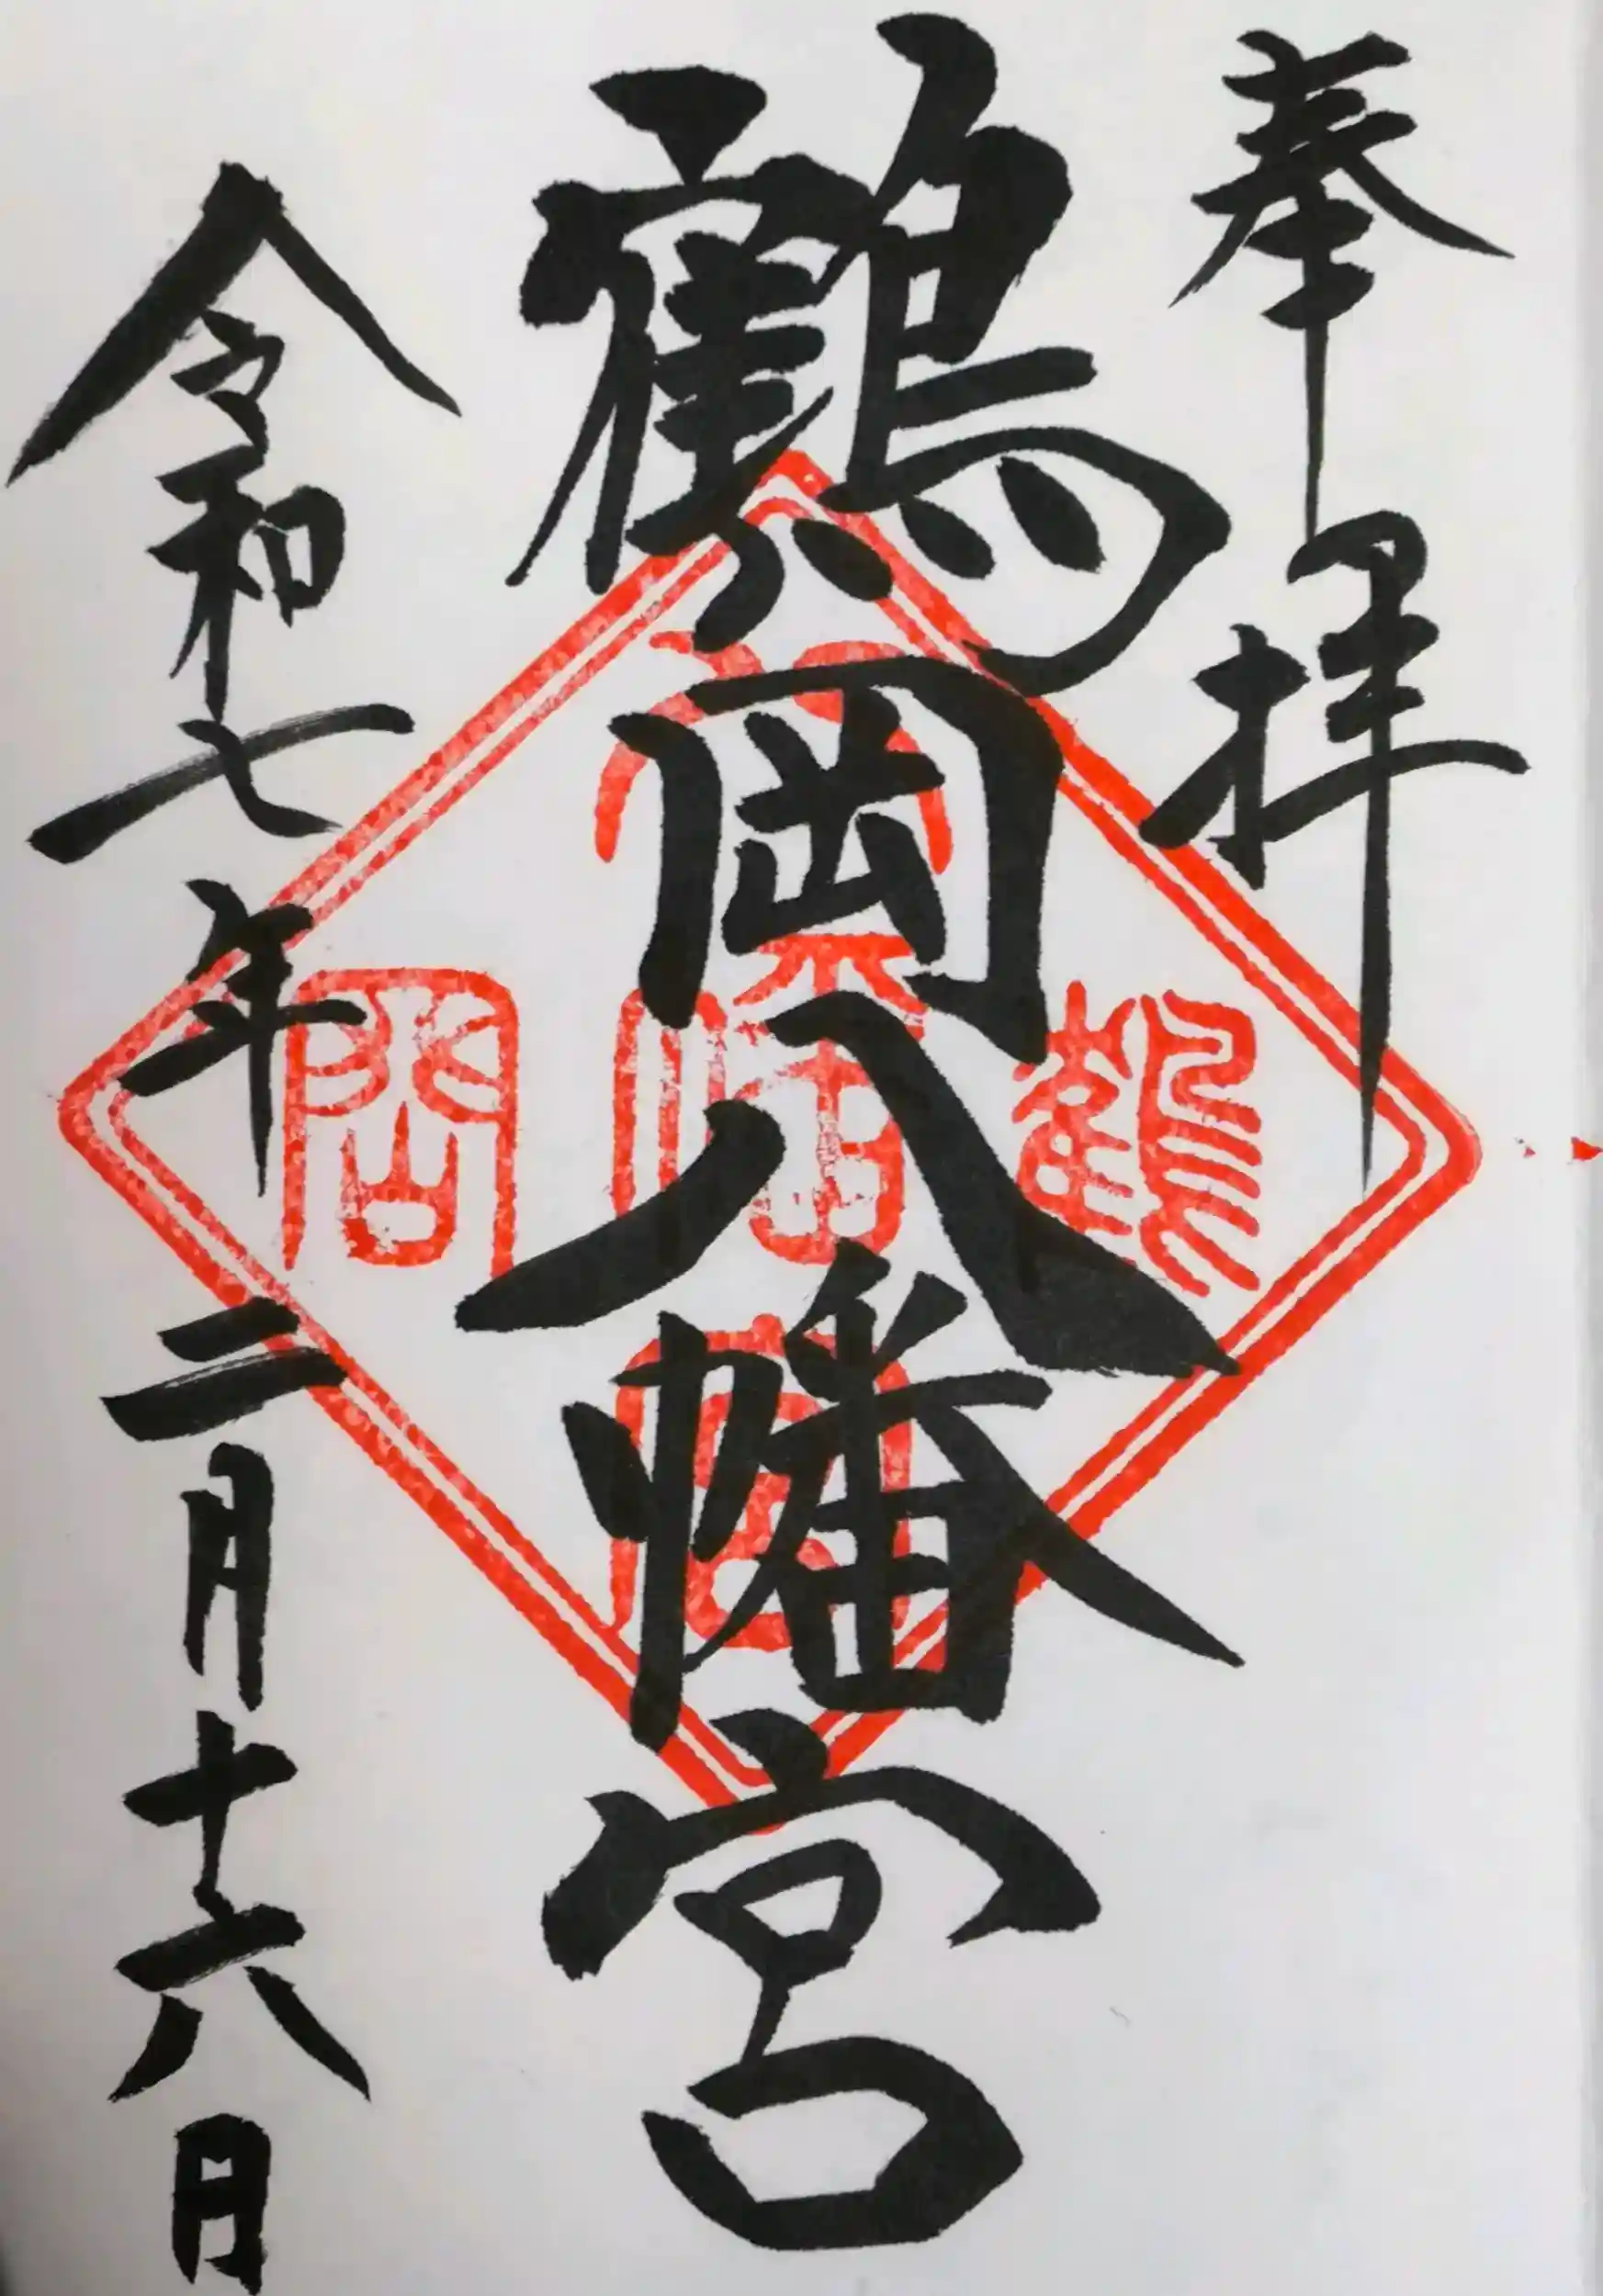 奉拝
鶴岡八幡宮
令和七年二月十六日
八
鶴幡岡
宮